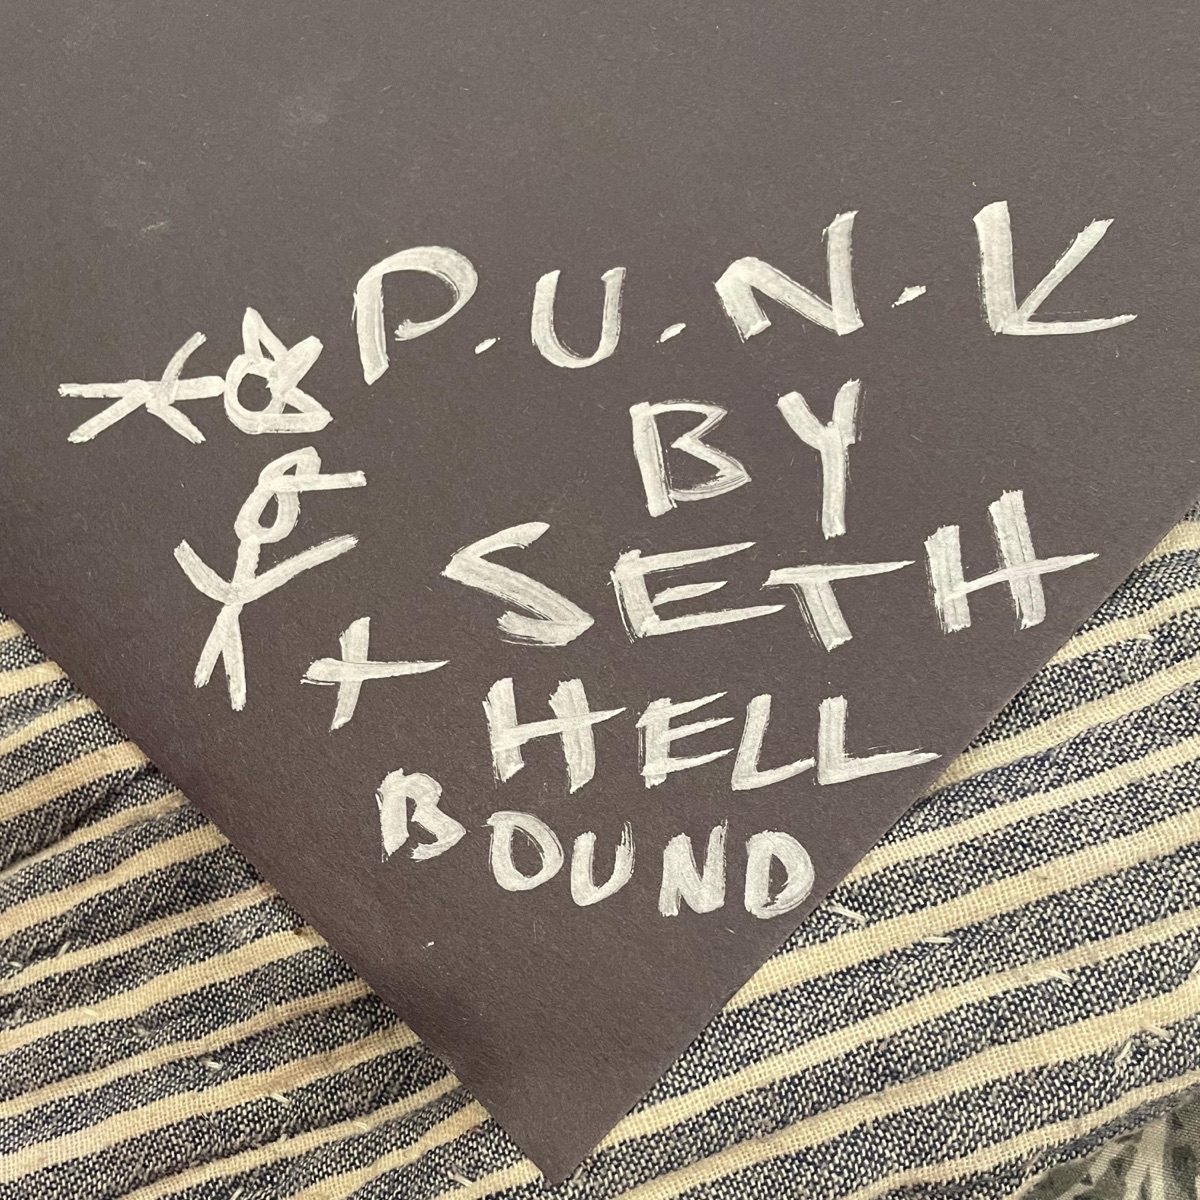 P.U.N.K
BY
SETH
+ HELL
BOUND